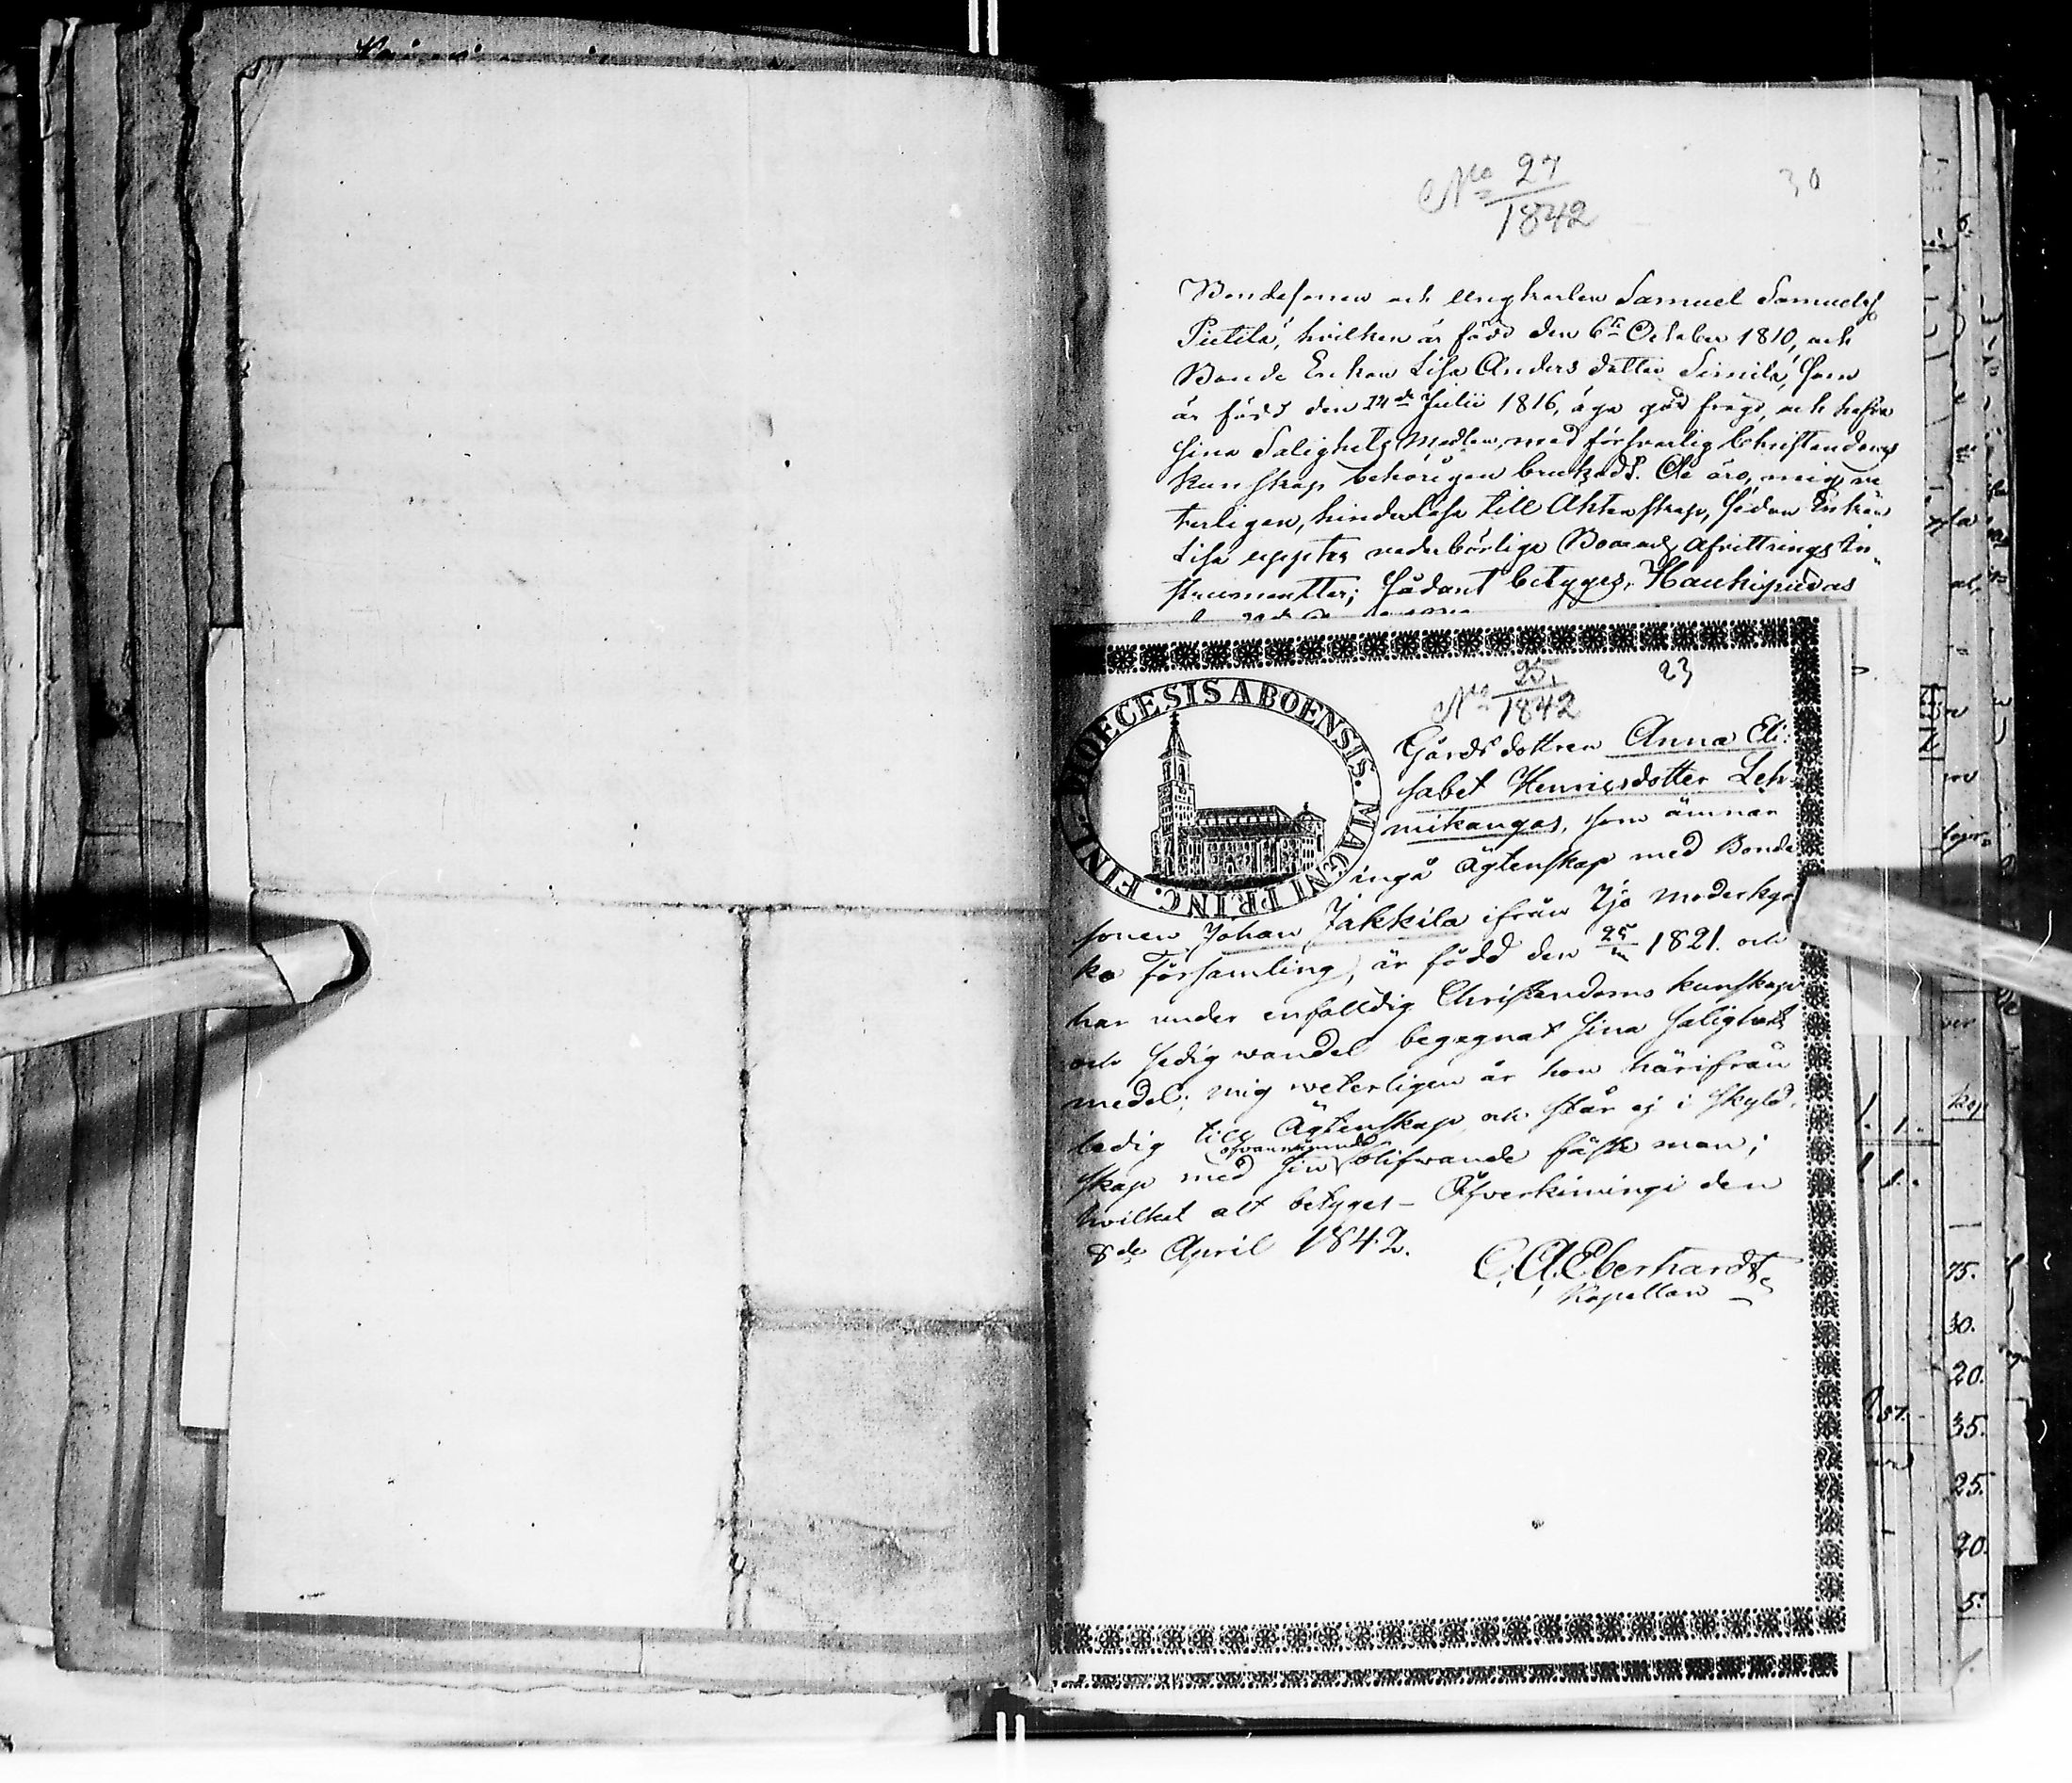 No 27
1842
30
Bondesonen och Ungkarlen Samuel Samuelss
Pietilä, hvilken är född den 6te October 1810, och
Bonde Enkan Lisa Anders dotter Simila, som
är född den 24de Julii 1816, äga god frägd, och hafva
sina Salighets Medlen, med försvarlig Christendoms
kunskap behörigen brukadt. De äro, mig ve
terligen, hinderlösa till Äktenskap, sedan Enkan
Lisa uppter vederbörlige Boends Afvittrings In-
strumenter; sådant betyges. Haukipudas
No 25.
1842
23
DIOECESIS ABOENSIS. MAGNI PRINC. FINL.
Gårds dottren Anna Eli:
sabet Henricsdotter Leh-
mikangas, som ämnar
ingå Ägtenskap med Bonde
sonen Johan Jakkila ifrån Ijo moderkyr
ko Församling, är född den 25 1821. och
har under enfalldig Christendoms kunskap
och sedig vandel begegnat sina salighets
medel; mig veterligen är hon härifrån
ledig till Ägtenskap, och står ej i skyld-
ofvannämnde
skap med sin blifwande fäste man;
hvilket alt betyges – Öfverkimingi den
8de April 1842.
C. A. Eberhardt
Kapellan
kop
75.
30.
20.
35.
25.
20.
5.